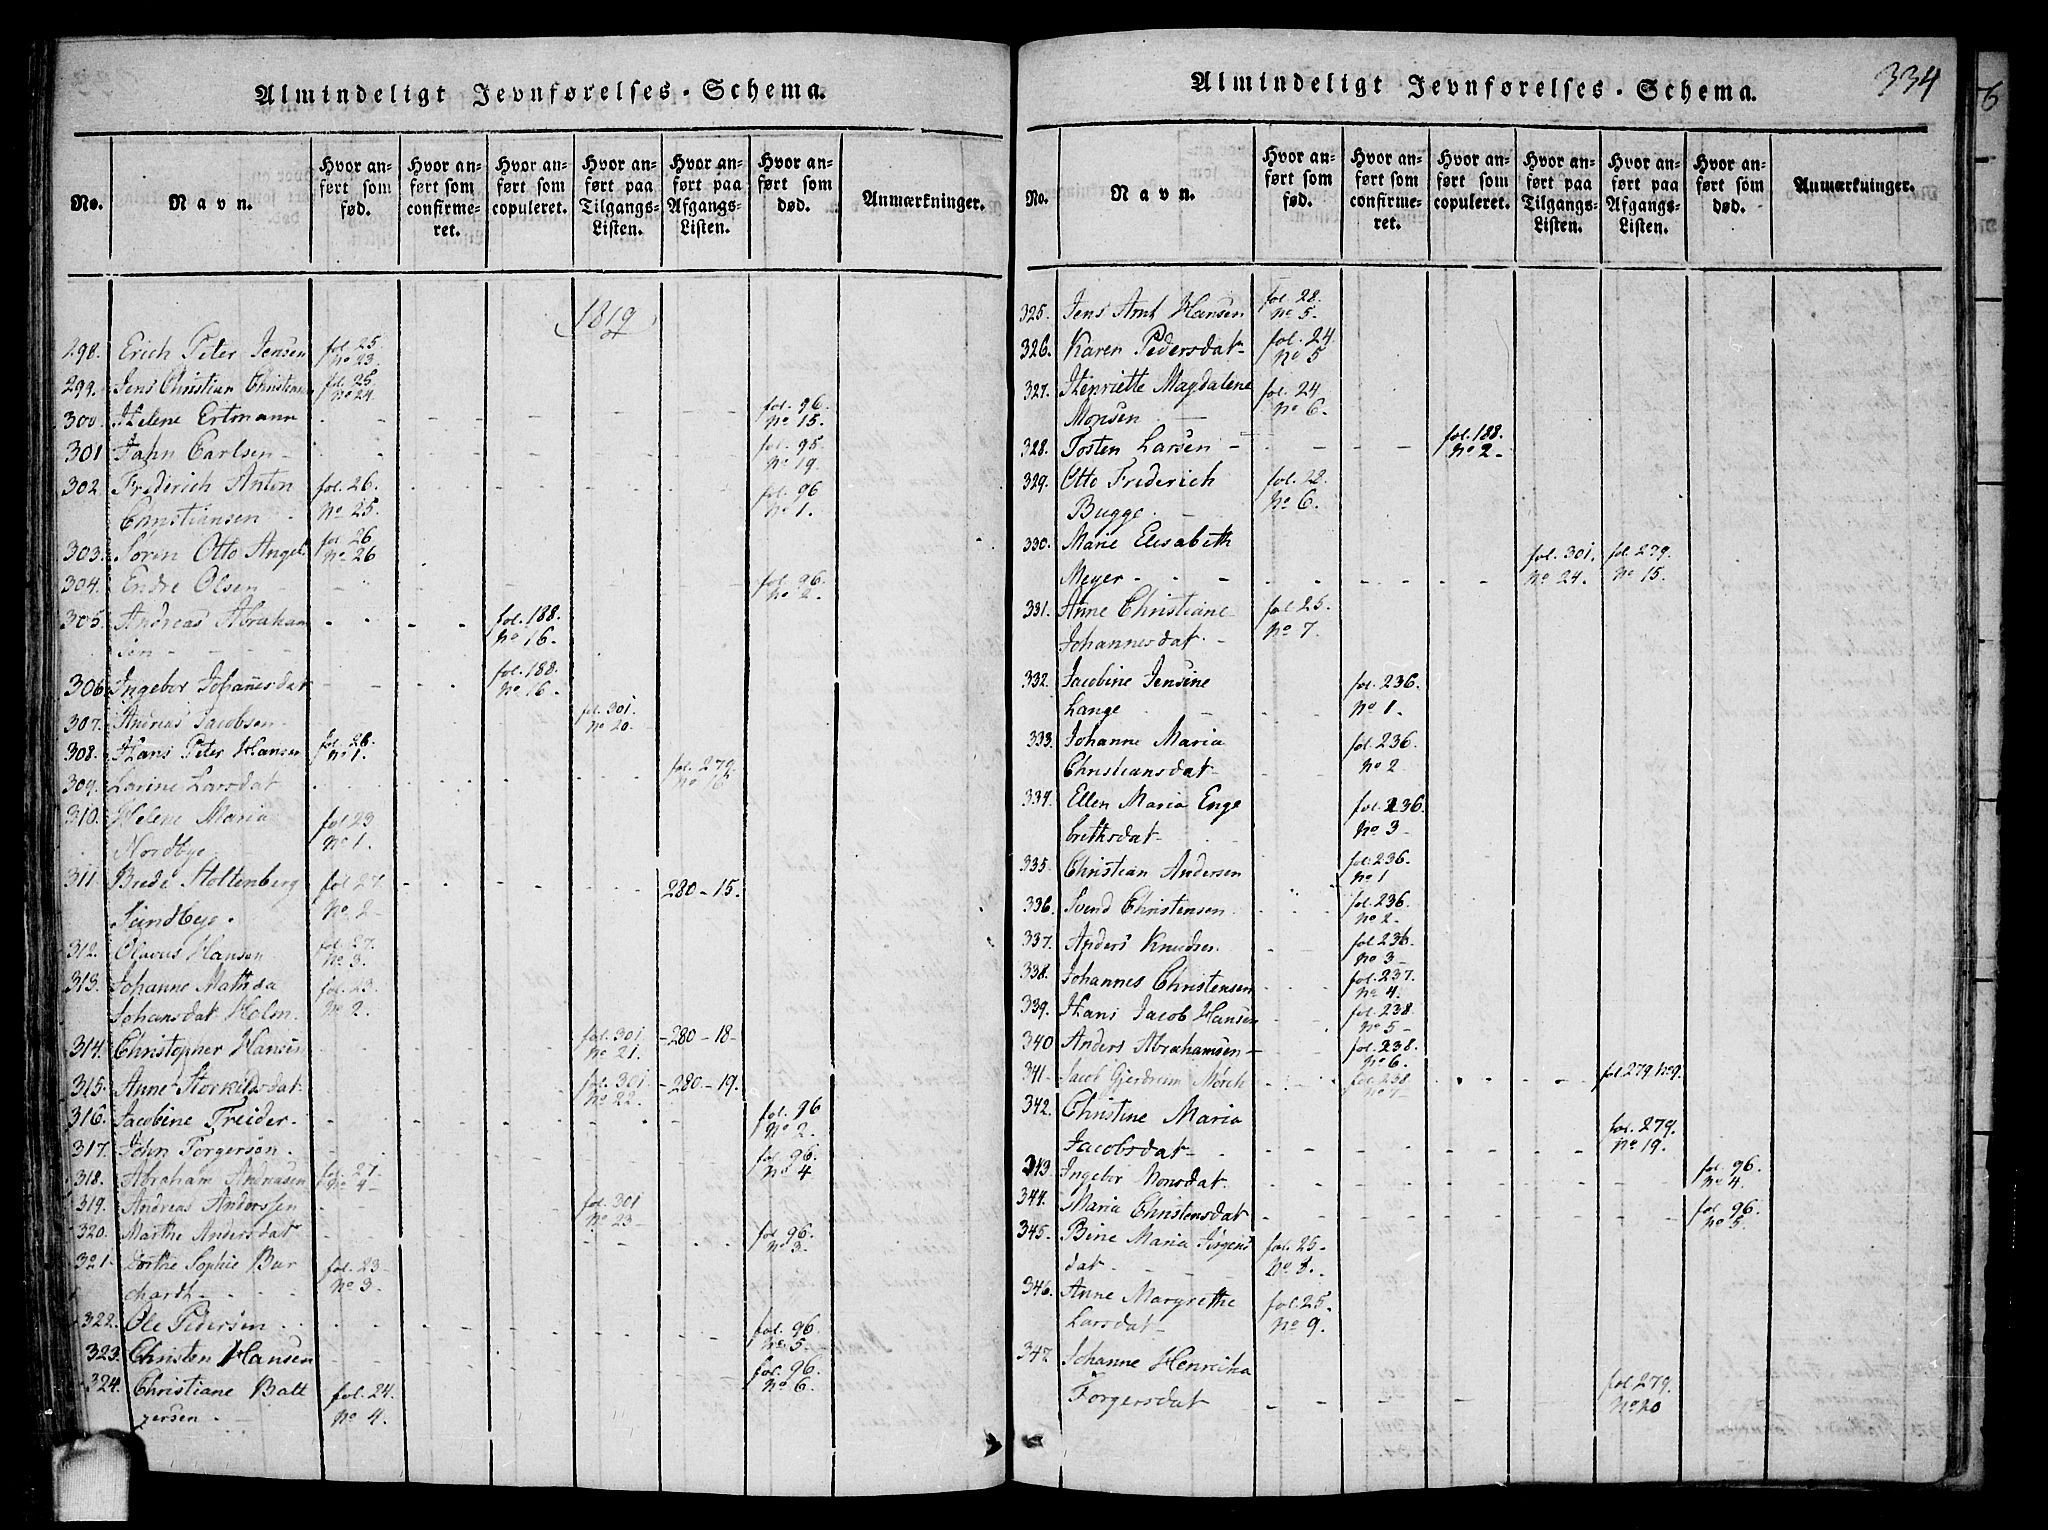 Almindeligt Jevnførelses-Schema.
No. Navn. Hvor anført som fød. Hvor anført som confirmeret. Hvor anført som copuleret. Hvor anført paa Tilgangs-Listen. Hvor anført paa Afgangs-Listen. Hvor anført som død. Anmærkninger.
1819
298. Erich Peter Jensen fol. 25 No 23.
299. Jens Christian Christians fol. 25 No 24.
300. Helene Ertmann fol. 96 No 15.
301 Jahn Carlsen fol. 95 No 19.
302. Friderich Anton fol. 26. fol. 96
Christiansen No 25. No 1.
303. Søren Otto Angel fol 26 No 26
304. Endre Olsen fol. 96. No 2.
305. Andreas Abraham fol. 188.
sen No 16.
306 Ingebor Johannesdat fol. 188. No 16.
307. Andreas Jacobsen fol. 301. No 20.
308. Hans Peter Hansen fol. 26. No 1.
309. Larine Larsdat fol. 279 No 16
310. Helene Maria fol 23
Nordbye No 1.
311 Brede Stoltenberg fol 27. 280-15.
Sundbye. No. 2
312. Olavus Hansen fol. 27. No 3.
313. Johanne Mathea fol. 23.
Johansdat Holm. No 2.
314. Christopher Hansen fol. 301 No 21. 280-18
315. Anne Storkildsdat fol. 301 No 22. 280-19.
316. Jacobine Treider fol. 96 No 2.
317. John Torgersøn fol. 96. No 4
318. Abraham Andreasen fol. 27 No 4
319. Andreas Anderssen fol. 301 No 23
320. Marthe Andersdat fol. 96. No 3.
321 Dorthe Sophie Bur fol. 23
chardt No 3.
322. Ole Pedersen fol. 96 No. 5.
323. Christen Hansen fol. 96. No 6.
324. Christiane Balt fol. 24.
zersen. No 4.
Almindeligt Jevnførelses-Schema.
334
No. Navn. Hvor anført som fød. Hvor anført som confirmeret. Hvor anført som copuleret. Hvor anført paa Tilgangs-Listen. Hvor anført paa Afgangs-Listen. Hvor anført som død. Anmærkninger.
325. Jens Arnt Hansen fol. 28. No 5.
326. Karen Pedersdat fol. 24. No 5
327. Henriette Magdalene fol. 24
Monsen No 6.
328. Tosten Larsen fol. 188. No 2
329. Otto Friderich fol. 28.
Bugge No 6.
330. Marie Elisabeth fol. 301. fol. 279.
Meyer No 24. No 15.
331. Anne Christiane fol 25.
Johannesdat No 7.
332. Jacobine Jensine fol. 236.
Lange No 1.
333. Johanne Maria fol. 236.
Christiansdat No 2
334. Ellen Maria Enge fol. 236.
brethsdat No 3
335. Christian Andersen fol. 236. No 1
336. Svend Christensen fol. 236 No 2
337. Anders Knudsen fol. 236 No 3
338. Johannes Christensen fol. 237. No 4
339. Hans Jacob Hansen fol. 238. No 5
340 Anders Abrahamsen fol. 238. No 6.
341 Jacob Gierdrum Mørch fol. 238 No 7 fol 279 No 9.
342. Christine Maria fol. 279.
Jacobsdat No 19.
343. Ingebor Monsdat fol. 96. No 4.
344. Maria Christensdat fol. 96. No 5.
345. Bine Maria Jørgens fol. 25
dat No 8.
346. Anne Margrethe fol. 25.
Larsdat No 9.
347. Johanne Henricha fol. 279.
Torgersdat No 20